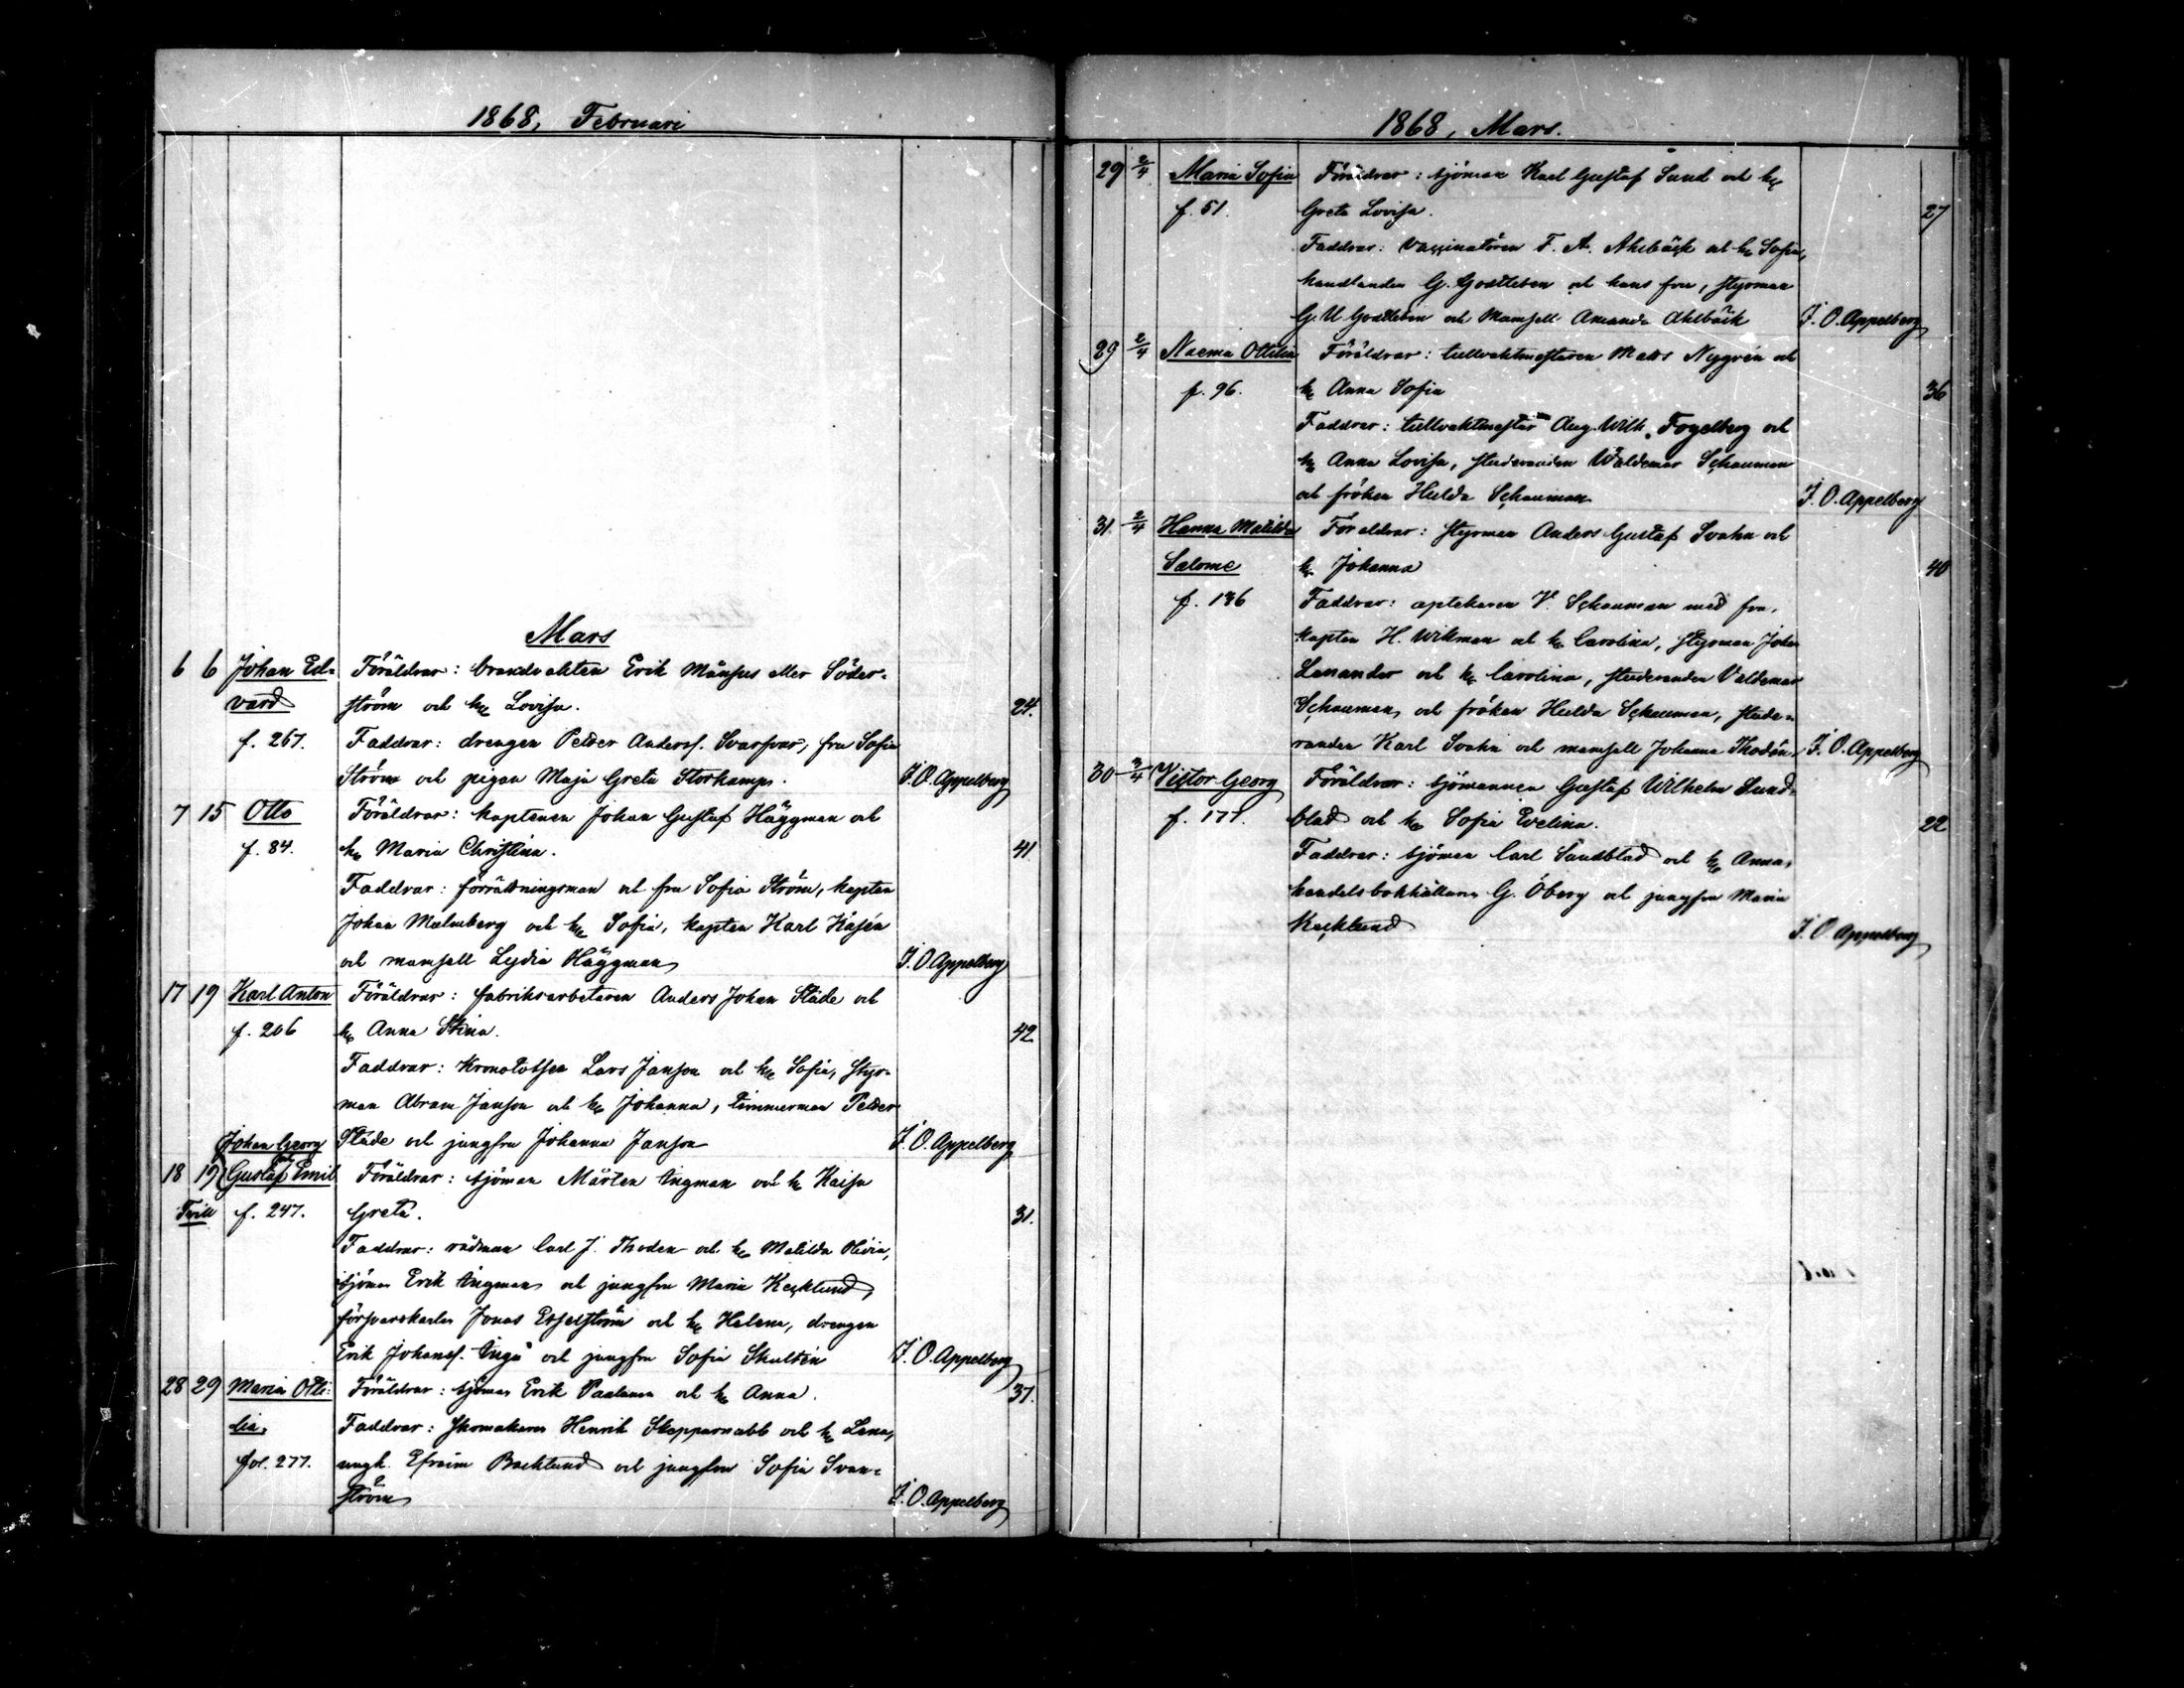 1868, Februari
Mars
6 6 Johan Ed= Föräldrar: brandvakten Erik Månsus eller Söder=
vard ström och h. Lovisa. 24.
f. 267. Faddrar: drengen Petter Anderss. Svarfvar, fru Sofia
Ström och pigan Maja Greta Storkamp. J. O. Appelberg
7 15 Otto Föräldrar: kaptenen Johan Gustaf Häggman och
f. 84. h. Maria Christina. 41
Faddrar: förrättningsman och fru Sofia Ström, kapten
Johan Malmberg och h. Sofia, kapten Karl
och mamsell Lydia Häggman J. O. Appelberg
17 19 Karl Anton Föräldrar: fabriksarbetaren Anders Johan Städe och
f. 206 h. Anna Stina. 42
Faddrar: Kronolotsen Lars Janson och h. Sofia, styr=
man Abram Janson och h. Johanna, timmerman Petter
Johan Georg Städe och jungfru Johanna Janson J. O. Appelberg
18 19 Gustaf Emil Föräldrar: sjöman Mårten Ingman och h. Kaisa
Tvill f. 247. Greta. 31.
Faddrar: rådman Carl J. Thoden och h. Matilda
sjöman Erik Ingman och jungfru Maria Kecklund,
försvarskarlen Jonas och h. Helena, drengen
Erik Johanss. och jungfru Sofia Skultén J. O. Appelberg
28 29 Maria Otti= Föräldrar: sjöman Erik och h. Anna. 37.
lia. Faddrar: skomakaren Henrik och h. Lena,
fol. 277. ungk. Efraim Backlund och jungfru Sofia Svan=
ström J. O. Appelberg
1868, Mars.
29 2/4 Maria Sofia Föräldrar: sjöman Karl Gustaf Sund och h.
f. 51. Greta Lovisa. 27
Faddrar: Vaccinatören F. A. Ahlbäck och h. Sofia,
handlanden G. Gottleben och hans fru, styrman
G. U. Gottleben och Mamsell Amanda Ahlbäck J. O. Appelberg
29 2/4 Naema Ottilia Föräldrar: tullvaktmästaren Matts Nygrén och
f. 96. h. Anna Sofia 36
Faddrar: tullvaktmäster Aug. Wilh. Fogelberg och
h. Anna Lovisa, studeranden Waldemar Schauman
och fröken Hulda Schauman J. O. Appelberg
31. 2/4 Hanna Matilda Föreldrar: styrman Anders Gustaf Svahn och
Salome h. Johanna 40
f. 186 Faddrar: aptekaren V. Schauman med fru,
kapten H. Wikman och h. Carolina, styrman Johan
Lanander och h. Carolina, studeranden Valdemar
Schauman, och fröken Hulda Schauman, stude=
randen Karl Svahn och mamsell Johanna Thodén. J. O. Appelberg
30 3/4 Victor Georg Föräldrar: sjömannen Gustaf Wilhelm Sund=
f. 177. blad och h. Sofia Evelina. 22
Faddrar: sjöman Carl Sundblad och h. Anna,
handelsbokhållaren G. Öberg och jungfru Maria
Kecklund J. O. Appelberg